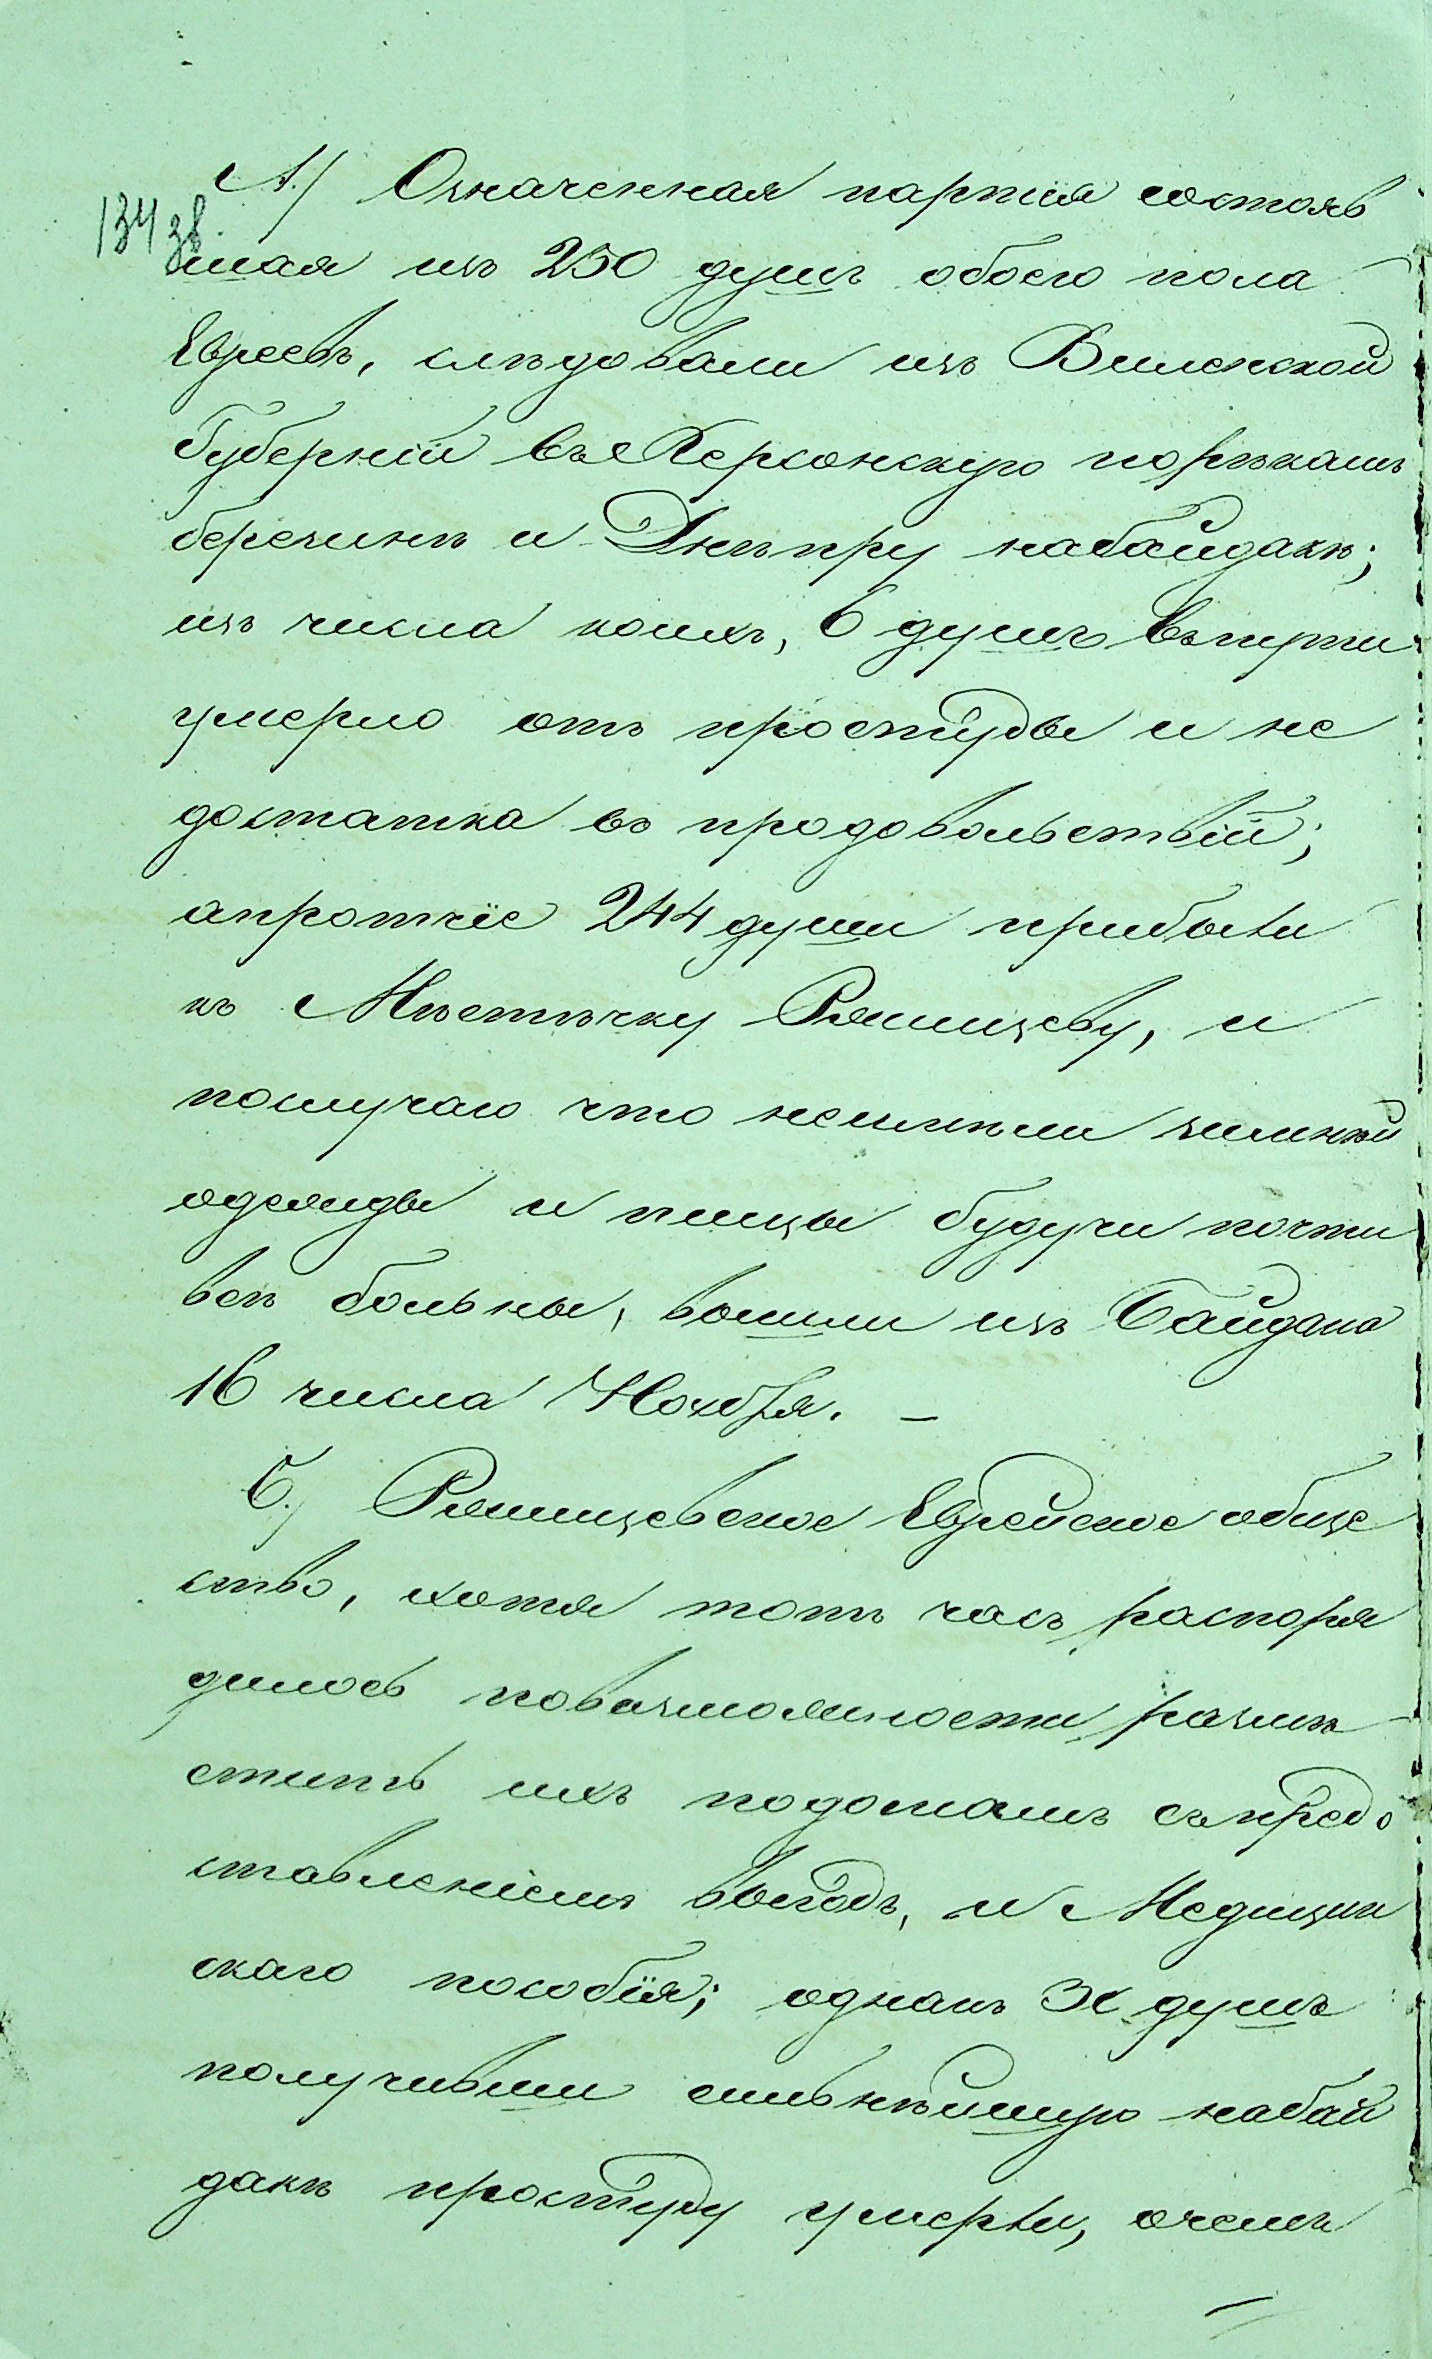 А.) Означенная партія состояв
134 зв.
шая изъ 250 душъ обоего пола
Евреевъ, слѣдовали изъ Виленской
Губерніи въ Херсонскую порѣкамъ
березинѣ и Днѣпру набайдакѣ;
изъ числа коихъ, 6 душъ въпути
умерло отъ простуды и не
достатка въ продовольствіи;
апротчіе 244 души прибыли
къ Мѣстѣчку Ржищеву, и
послучаю что неимѣли зимнѣй
одежды и пищы будучи почти
всѣ больны, вышли изъ Байдака
16 числа Ноября. —
Б.) Ржищевское Еврейское обще
ство, хотя тотъ часъ распоря
дилось повазможности размѣ
стить ихъ подомамъ съпредо
ставленіемъ выгодъ, и Медицин
скаго пособія; однакъ душъ
получивши сильнѣйшую набай
дакѣ простуду умерли, очемъ